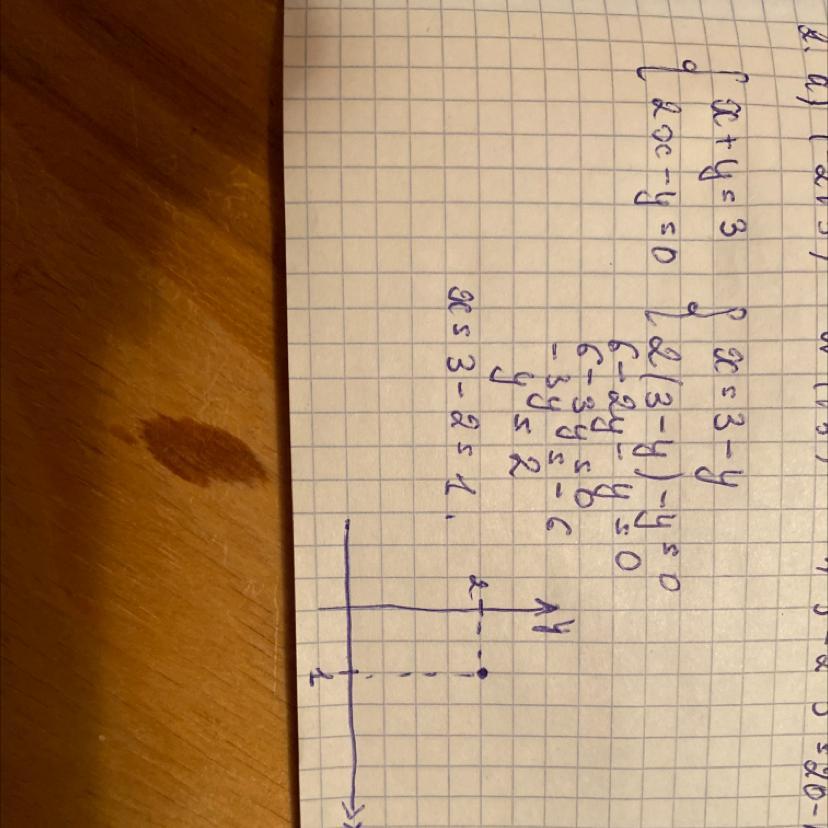 2. a)
{ x + y = 3
{ 2x - y = 0
{ x = 3 - y
{ 2(3 - y) - y = 0
6 - 2y - y = 0
6 - 3y = 0
- 3y = - 6
y = 2
x = 3 - 2 = 1.
y
2
1